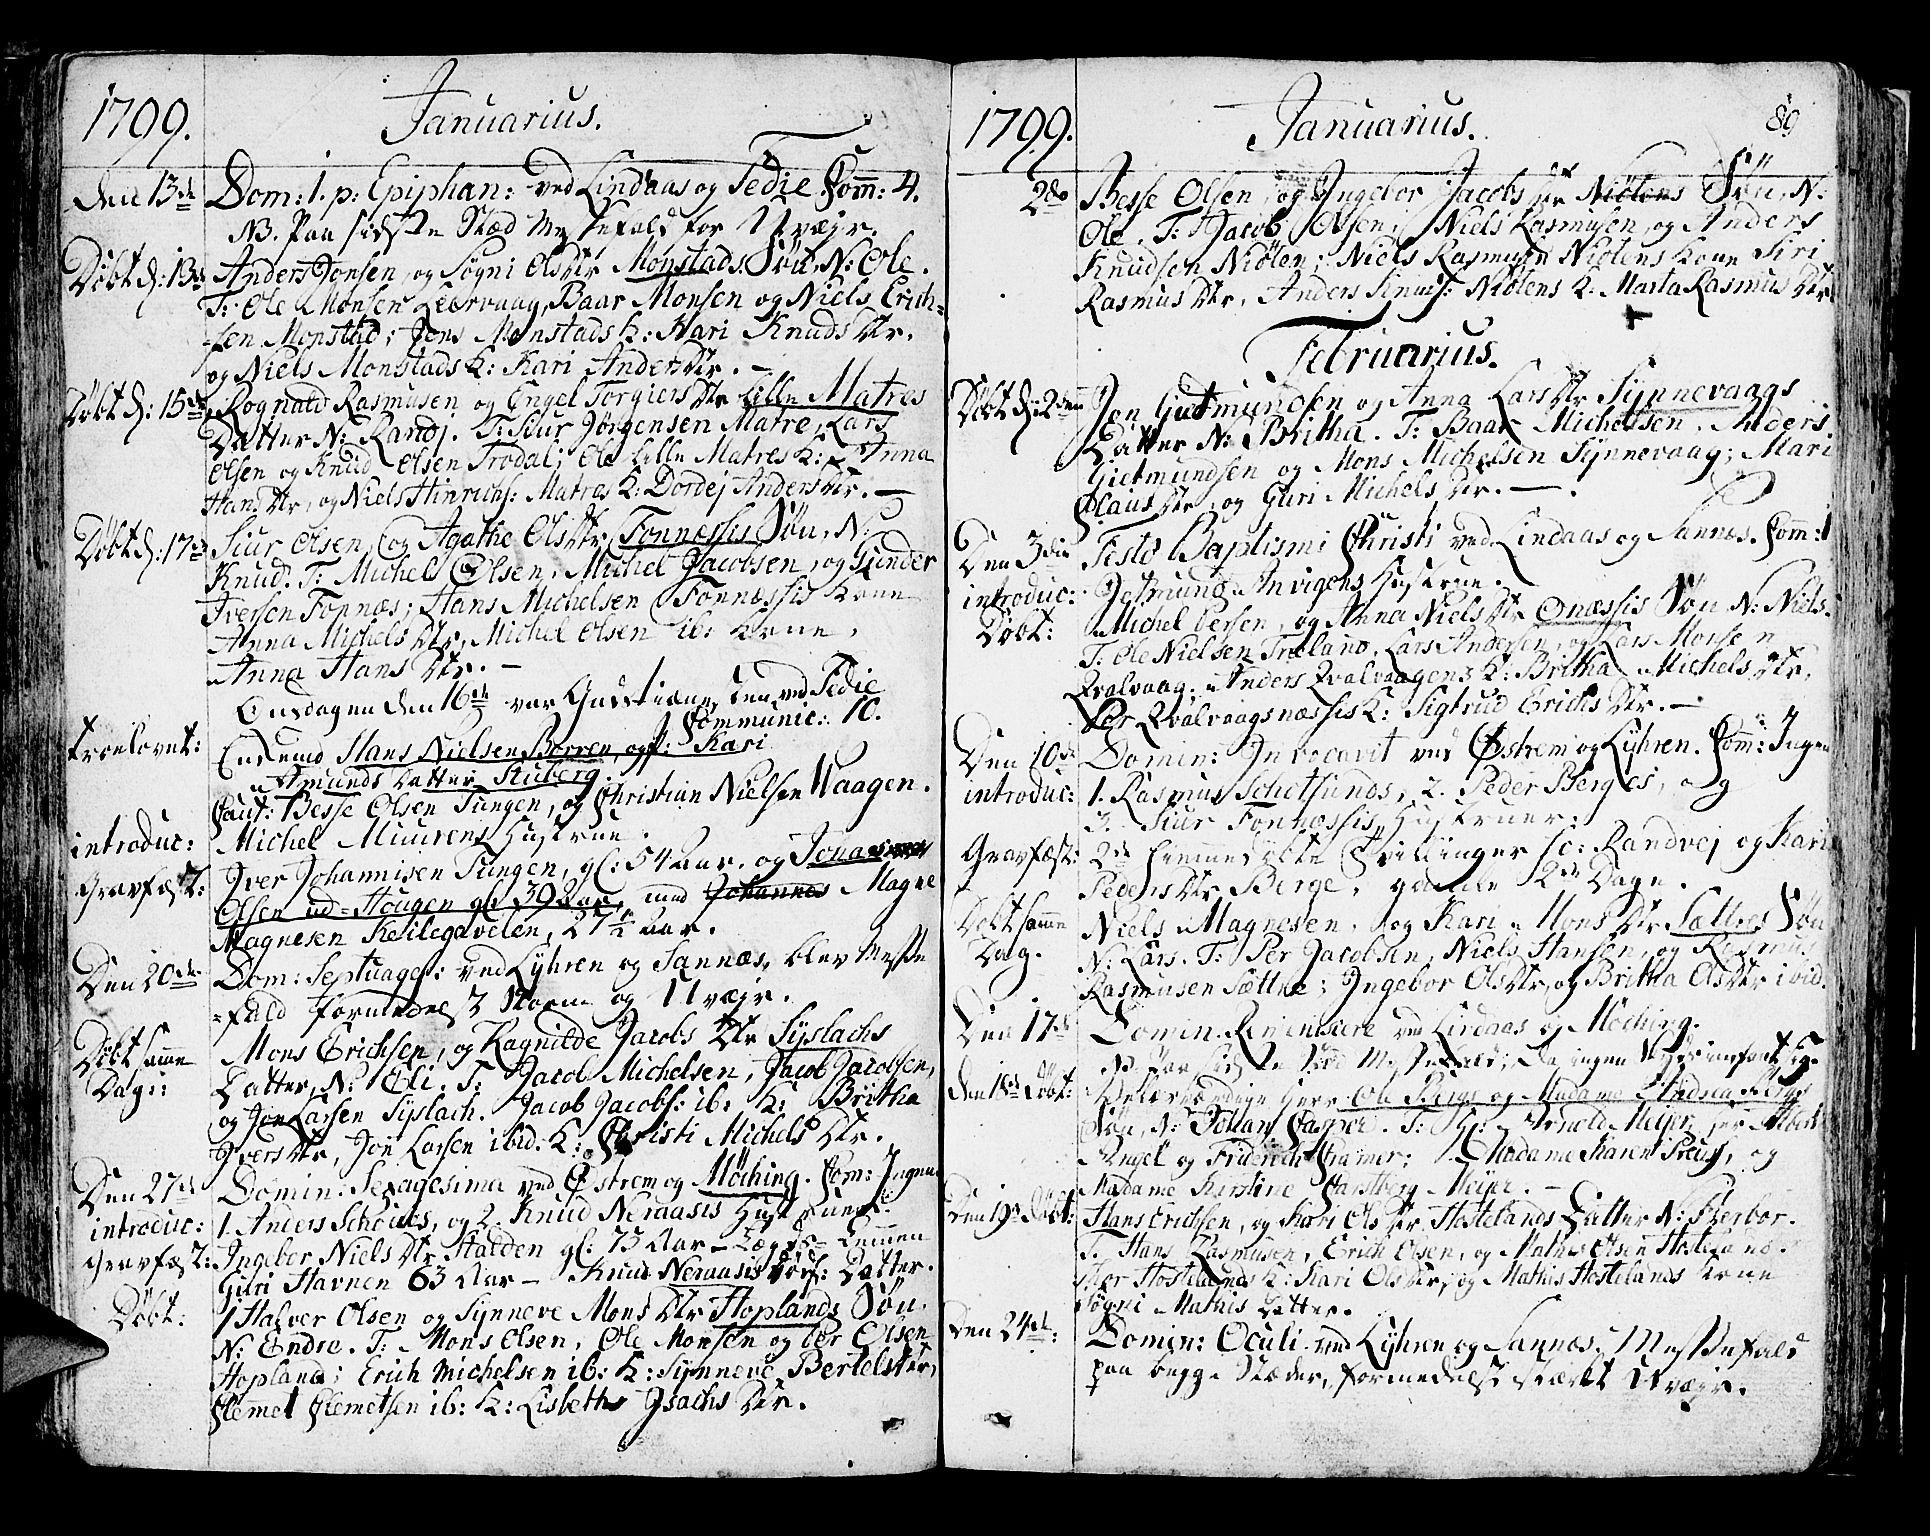 1799. Januarius.
den 13de Dom: 1. p: Epiphan: ved Lindaas og Sedie Com: 4.
NB. Paa sidste Stæd Messefald for Uvejr.
Döbt d: 13de Anders Jonsen, og Sögni OlsDtr Monstads Sön, N: Ole.
T: Ole Monsen Leervaag, Baar Monsen og Niels Erich-
sen Monstad; Jens Monstads K: Kari KnudsDtr.
og Niels Monstads K: Kari AndersDtr. —
Döbt d: 15de Rognald Rasmusen og Engel TorgiersDtr Lille Matres
Datter N: Randj. T: Siur Jörgensen Matre, Lars
Olsen og Knud Olsen Trodal; Ole Lille Matres K: Anna
HansDtr, og Niels Hinrichs: Matres K: Dordej AndersDtr. —
Döbt d: 17de Siur Olsen, og Agathe OlsDtr Fonnæssis Sön, N:
Knud. T: Michel Olsen, Michel Jacobsen, og Gunder
Iversen Fonnæs; Hans Michelsen Fonnæssis Kone
Anna MichelsDtr, Michel Olsen ib: Kone,
Anna HansDtr. —
Onsdagen den 16de var Gudstieneste ved Sedie
Communic: 10.
troelovet: Enkemd Hans Nielsen Borren, og P: Kari
Amunds Datter Stuberg.
Caut: Besse Olsen Tungen, og Christian Nielsen Waagen.
introduc: Michel Muurens Hustrue.
Gravfæst: Iver Johannisen Tungen, gl: 54 Aar. og Jonas
Olsen ud-Hougen gl: 39 Aar, med Johannes Magne
Magnesen Keilegavelen, 27 1/2 Aar.
Den 20de Dom: Septuages: ved Lyhren og Sannæs, blev Messe
-fald formedelst Storm og Uvejr.
Döbt samme Mons Erichsen, og Ragnilde JacobsDtr Syslachs
Dag: Datter, N: Eli. T: Jacob Michelsen, Jacob Jacobsen,
og Jon Larsen Syslach. Jacob Jacobs: ib: K: Britha
IversDtr, Jon Larsen ibid: K: Christi MichelsDtr.
Den 27de Domin: Sexagesima ved Østrem og Möching. Com: Ingen
introduc: 1. Anders Schoutes, og 2. Knud Neraasis Hustruer.
Gravfæst: Ingebor NielsDtr Stalden gl: 73 Aar — Lægds-Lemmen
Guri Havnen 63 Aar — Knud Neraasis Datter.
Döbt: Halver Olsen og Synneve MonsDtr Hoplands Sön.
N: Endre. T: Mons Olsen, Ole Monsen og Per Olsen
Hopland; Erich Michelsen ib: K: Synneve BertelsDtr,
Clemet Clemetsen ib: K: Lisbeth IsachsDtr.
1799. Januarius. 89
2do Besse Olsen, og Ingebor JacobsDtr Niötens Sön, N:
Ole. T: Jacob Olsen, Niels Rasmusen, og Anders
Knudsen Niöten; Niels Rasmusen Niötens Kone Siri
RasmusDtr, Anders Knuds: Niötens K: Marta RasmusDtr
Februarius.
Döbt d: 2den Jon Gutmundsen og Anna LarsDtr Synnevaags
Datter N: Britha. T: Baar Michelsen, Anders
Gutmundsen og Mons Michelsen Synnevaag; Mari
ClausDtr, og Guri MichelsDtr. — .
Den 3die Festo Baptismi Christi ved Lindaas og Sannæs. Com: 1
introduc: Gutmund Invigens Hustrue.
Döbt: Michel Persen, og Anna NielsDtr Onæssis Sön, N: Niels.
T: Ole Nielsen Træland, Lars Andersen, og Lars Monsen
Qvalvaag. Anders Qvalvaagens K: Britha MichelsDtr,
Per Qvalvaagsnæssis K: Sigtrud ErichsDtr. —
Den 10de Domin: Invocavit ved Østrem og Lyhren. Com: Ingen
introduc: 1. Rasmus Schotsunds, 2. Peder Berges, og
3. Siur Fonnæssis Hustruer:
Gravfæst: 2de hiemmedöbte Tvillinger sc: Randvej og Kari
PedersDtr Berge, gamle 12 Dage.
Döbt samme Niels Magnesen, og Kari MonsDtr Sættres Sön
Dag. N: Lars. T: Per Jacobsen, Niels Hansen, og Rasmus
Rasmusen Sættre; Ingebor OlsDtr, og Britha OlsDtr ibid.
Den 17de Domin: Reminiscere ved Lindaas og Möching.
paa sidste Stæd Messefald; da ingen
den 18de Döbt: Velærværdige Herr Ole Bergs og Madame Andrea
Sön, N: Johan Casper. T: Arnold Meijer, Herr Albert
Angel og Friderich Cramer; Madame Karen Preus, og
Madame Kirstine Carstberg Meijer. —
Den 19de Döbt: Hans Erichsen, og Kari OlsDtr Hostelands Datter N: Herbor.
T: Hans Rasmusen, Erich Olsen, og Mathis Olsen Hosteland.
Hostelands K: Kari OlsDtr, og Mathis Hostelands Kone
Sögni Mathis Datter.
Den 24de: Domin: Oculi ved Lyhren og Sannæs. Messefald
paa begge Stæder, formedelst stærkt Uvejr.